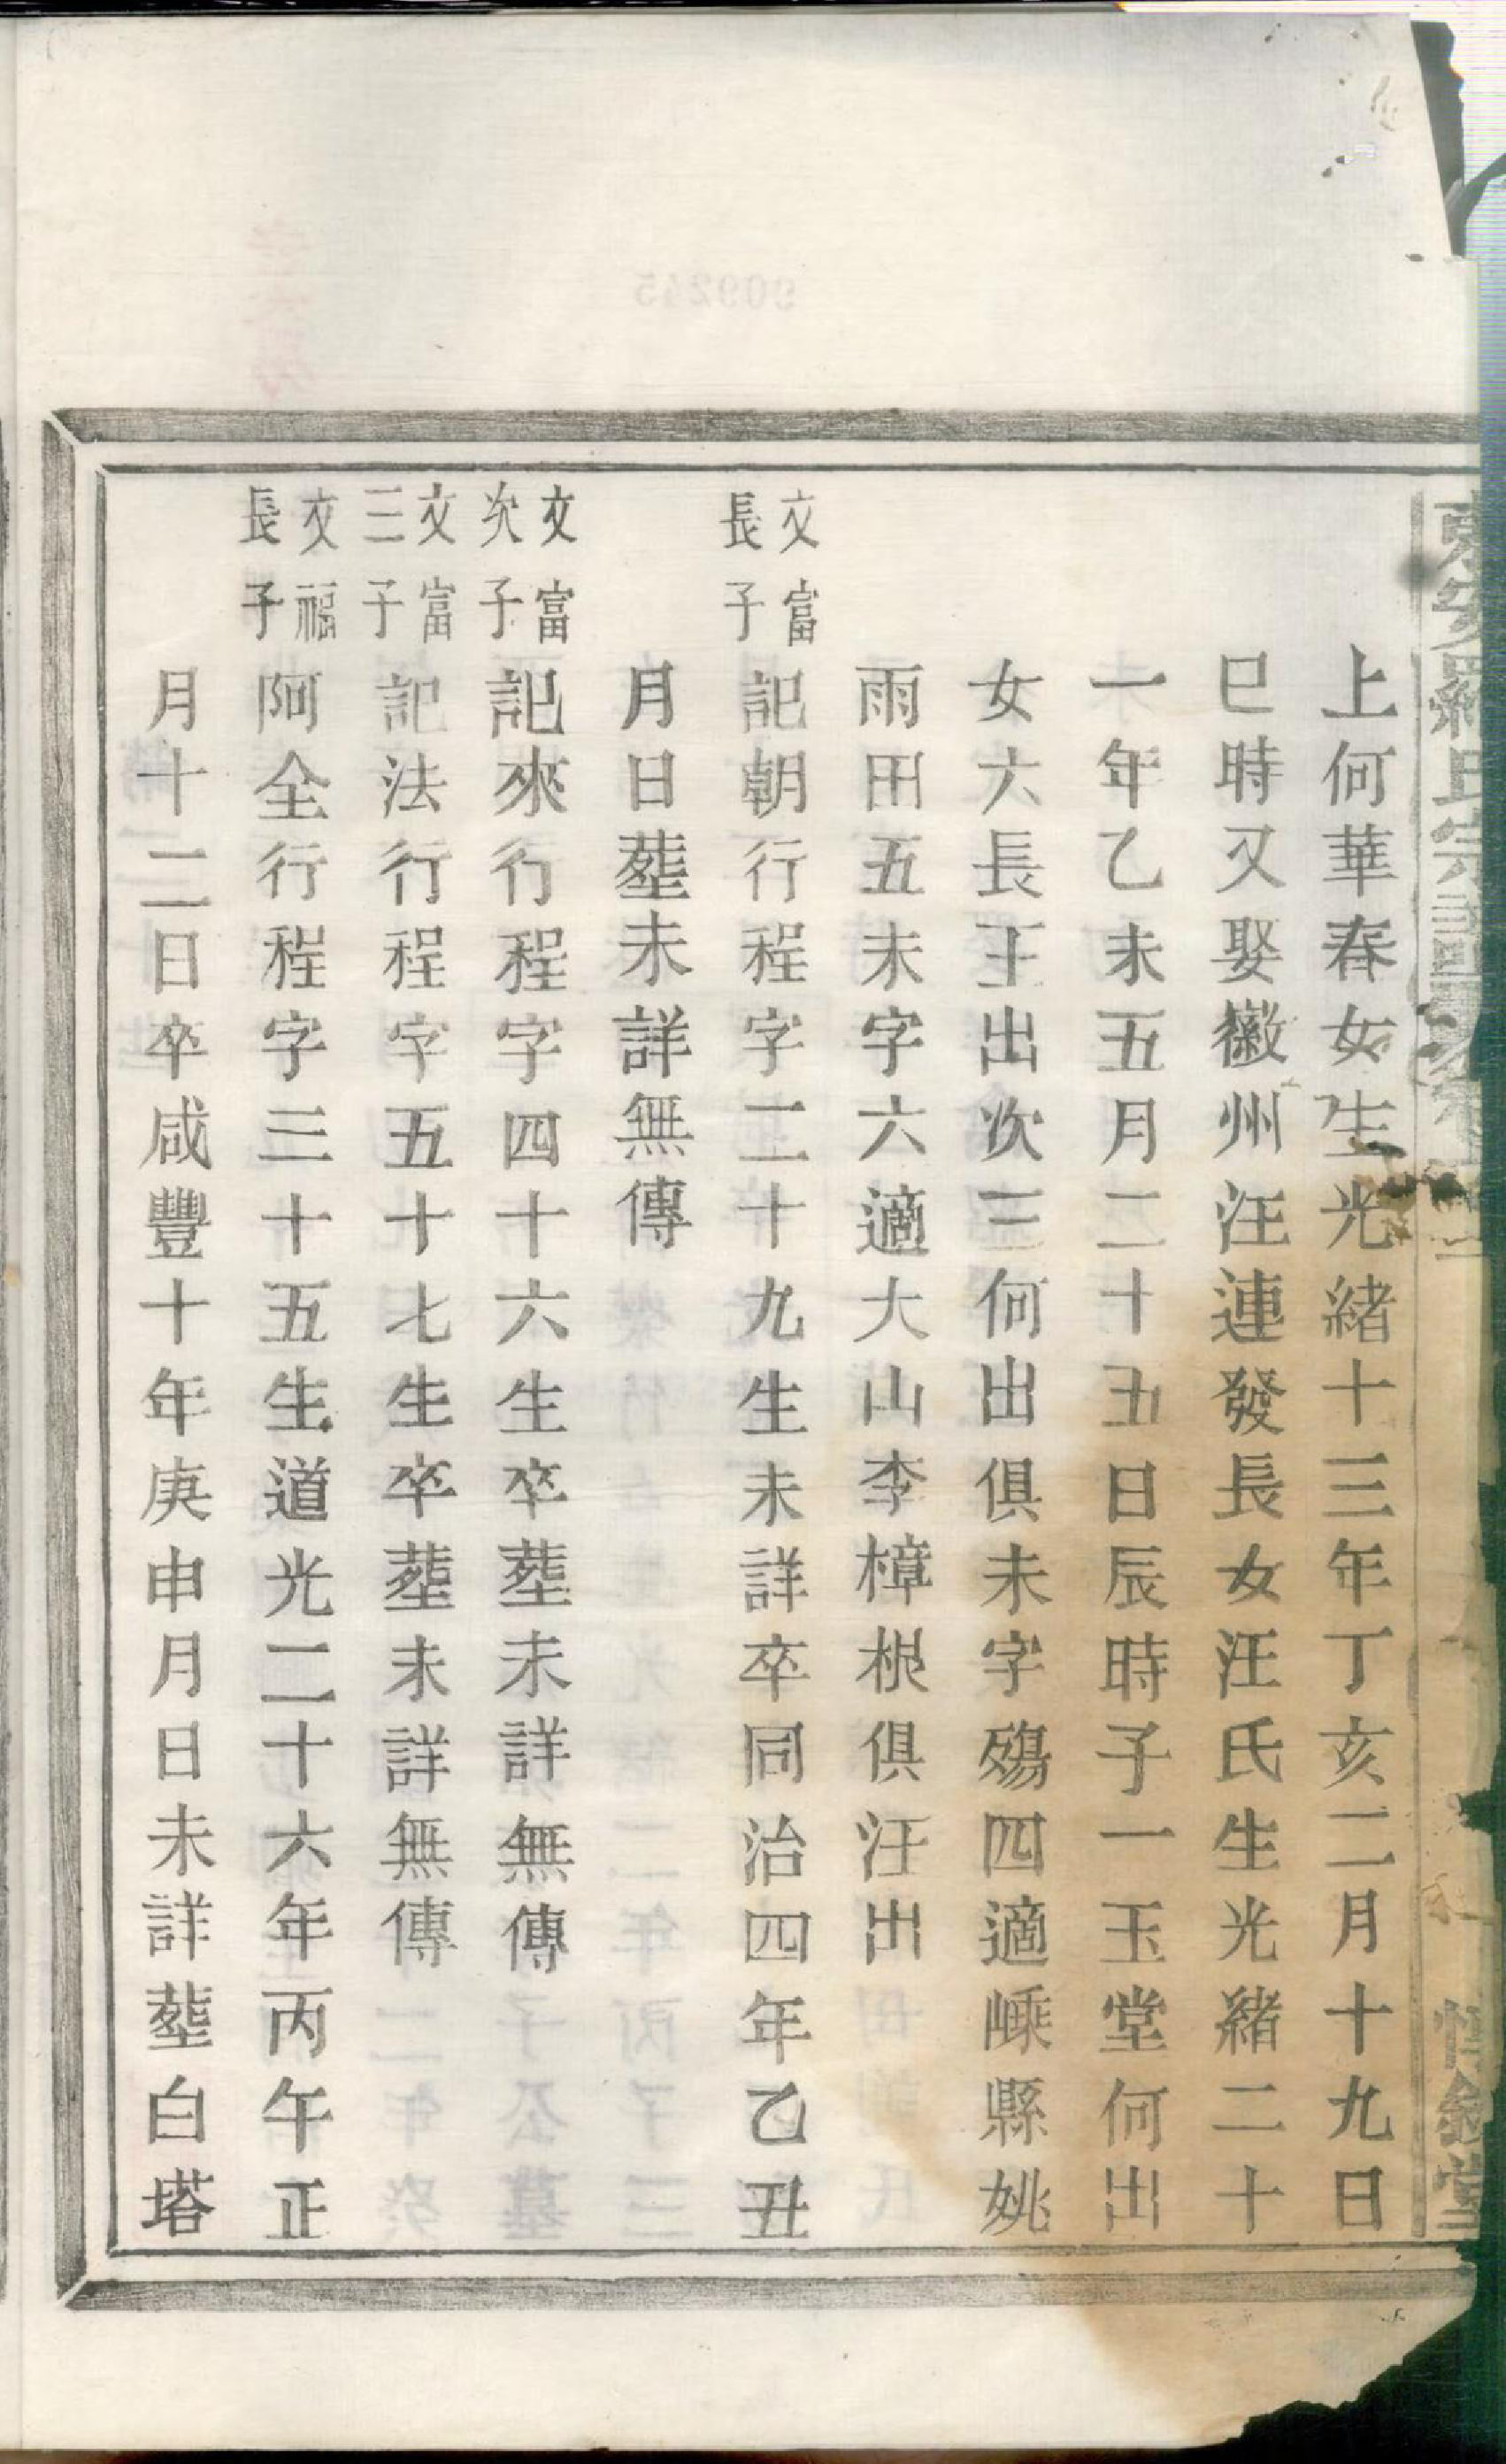 東安羅氏宗譜 惇敘堂
上何華春女生光緒十三年丁亥二月十九日
巳時又娶徽州汪連發長女汪氏生光緒二十
一年乙未五月二十五日辰時子一玉堂何出
女六長王出次三何出俱未字殤四適嵊縣姚
雨田五未字六適大山李樟根俱汪出
文富長子
記朝行程字二十九生未詳卒同治四年乙丑
月日塟未詳無傳
文富次子
記來行程字四十六生卒塟未詳無傳
文富三子
記法行程字五十七生卒塟未詳無傳
文福長子
阿全行程字三十五生道光二十六年丙午正
月十二日卒咸豐十年庚申月日未詳塟白塔